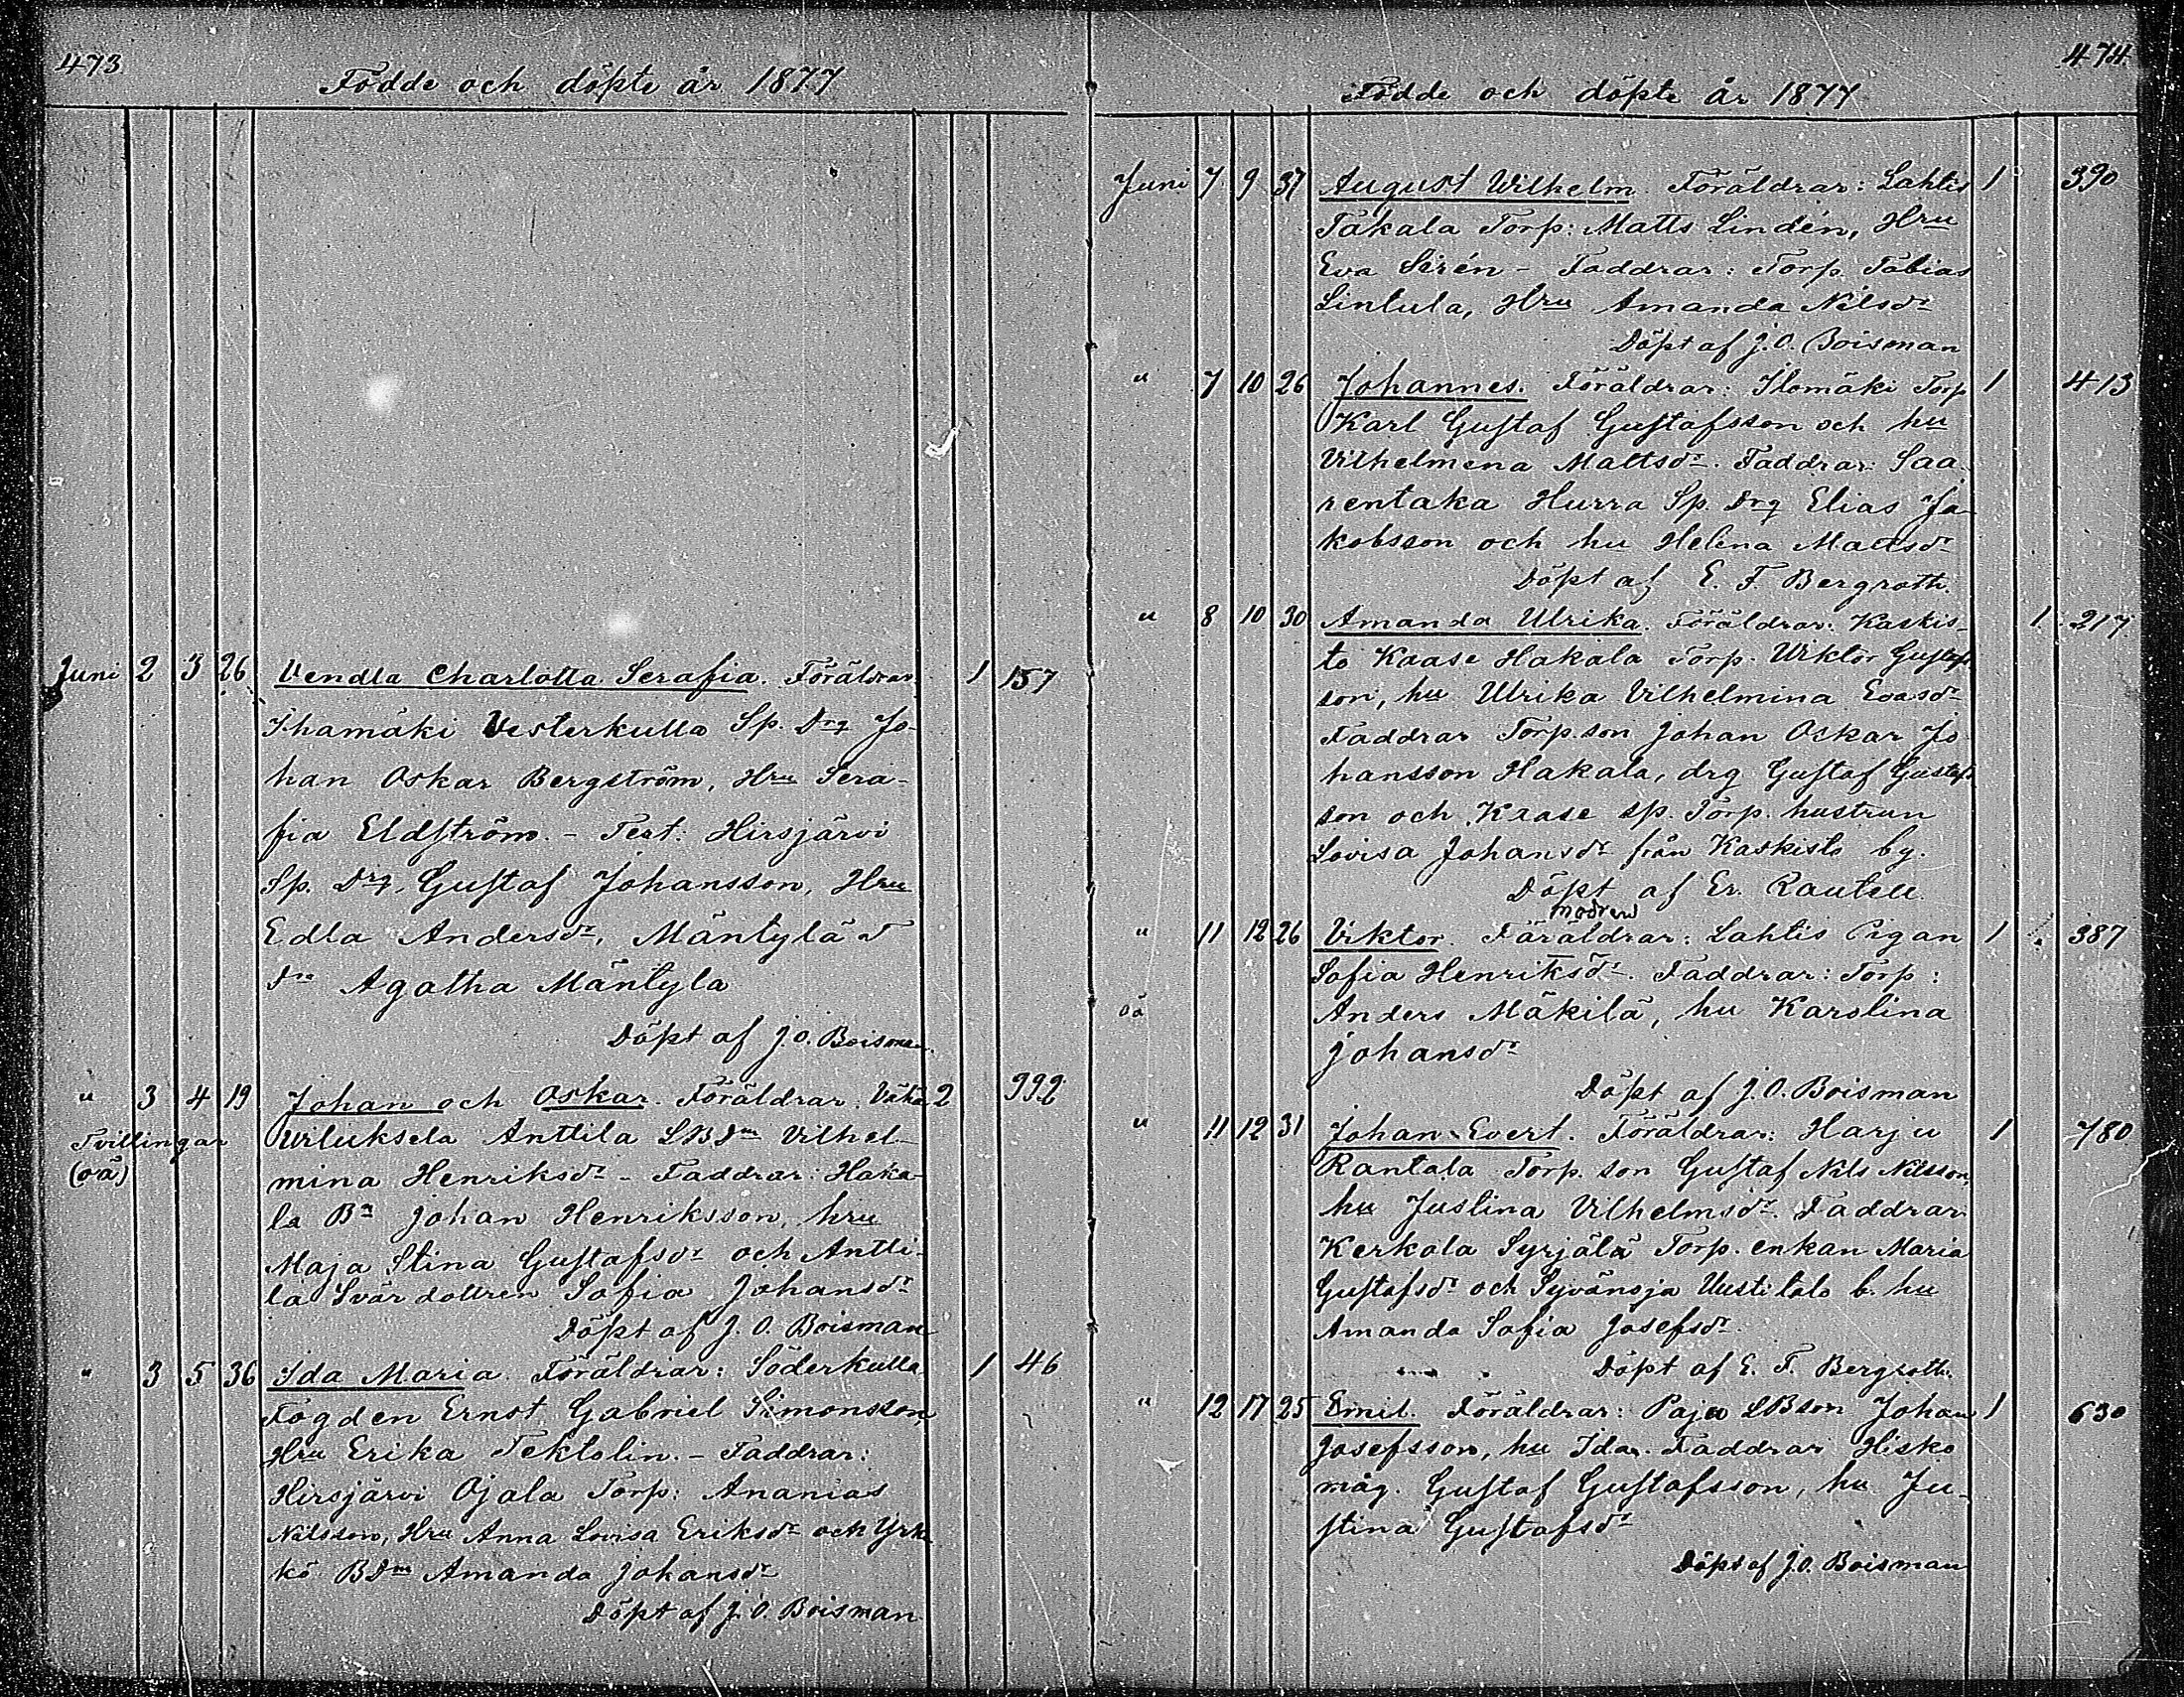 473
Födde och döpte år 1877
Juni 2 3 26 Vendla Charlotta Serafia. Föräldrar 1 157
Ihamäki Vesterkulla Sp. Drg Jo-
han Oskar Bergström, Hru Sera-
fia Eldström. - Test: Hirsjärvi
Sp. Drg. Gustaf Johansson, Hru
Edla Andersdr, Mäntylä
Agatha Mäntyla
Döpt af J. O. Boisman
" 3 4 19 Johan och Oskar. Föräldrar: Vähä 2 992
Tvillingar
(oä)
Viluksela Anttila LBDm Vilhel-
mina Henriksdr - Faddrar: Haka-
la Bn Johan Henriksson, hru
Maja Stina Gustafsdr och Antti-
la Svär dottren Sofia Johansdr
Döpt af J. O. Boisman
" 3 5 36 Ida Maria. Föräldrar: Söderkulla 1 46
Fogden Ernst Gabriel Simonsson
Hru Erika Tektolin. - Faddrar:
Hirsjärvi Ojala Torp: Ananias
Nilsson, Hru Anna Lovisa Eriksdr och Yrk
kö BDm Amanda Johansdr
Döpt af J. O. Boisman
474
Födde och döpte år 1877
Juni 7 9 37 August Wilhelm. Föräldrar: Lahtis 1 390
Takala Torp: Matts Lindén, Hru
Eva Sirén - Faddrar: Torp. Tobias
Lintula, Hru Amanda Nilsdr
Döpt af J. O. Boisman
" 7 10 26 Johannes. Föräldrar: Ilomäki Torp 1 413
Karl Gustaf Gustafsson och hu
Vilhelmina Mattsdr. Faddrar: Saa-
rentaka Hurra Sp. Drg Elias Ja-
kobsson och hu Helena Mattsdr
Döpt af E. F. Bergroth.
" 8 10 30 Amanda Ulrika. Föräldrar: Kaskis- 1 217
to Kaase Hakala Torp. Viktor Gustafs
son, hu Ulrika Vilhelmina Evasdr
Faddrar Torp. son Johan Oskar Jo
hansson Hakala, drg Gustaf Gustafs
son och Kaase sp. Torp. hustrun
Lovisa Johansdr från Kaskisto by.
Döpt af Er. Rautell
modren
" 11 12 26 Viktor. Föräldrar: Lahtis Pigan 1 387
Sofia Henriksdr. Faddrar: Torp:
oä
Anders Mäkilä, hu Karolina
Johansdr
Döpt af J. O. Boisman
" 11 12 31 Johan Evert. Föräldrar: Harju 1 780
Rantala Torp. son Gustaf Nils Nilsson,
hu Justina Vilhelmsdr. Faddrar
Kerkola Syrjälä Torp. enkan Maria
Gustafsdr och Syvänoja Uusitalo b. hu
Amanda Sofia Josefsdr
Döpt af E. F. Bergroth.
" 12 17 25 Emil. Föräldrar: Paju LBson Johan 1 630
Josefsson, hu Ida. Faddrar Hisko
måg. Gustaf Gustafsson, hu Ju-
stina Gustafsdr
Döpt af J. O. Boisman